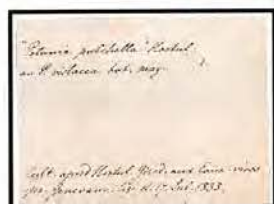 "Petunia pulchella" Hortul.
an P. violacea bot. mag. ?
Cult. apud Hortul. aux Eaux-vives
pr. Genevam 17 Jul. 1833.